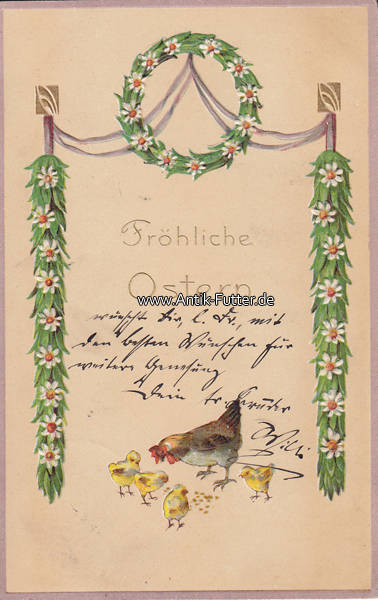 Fröhliche
Ostern
www.Antik-Futter.de
wünscht Dir, l. Fr., mit
den besten Wünschen für
weitere Genesung
Dein tr. Bruder
Willi